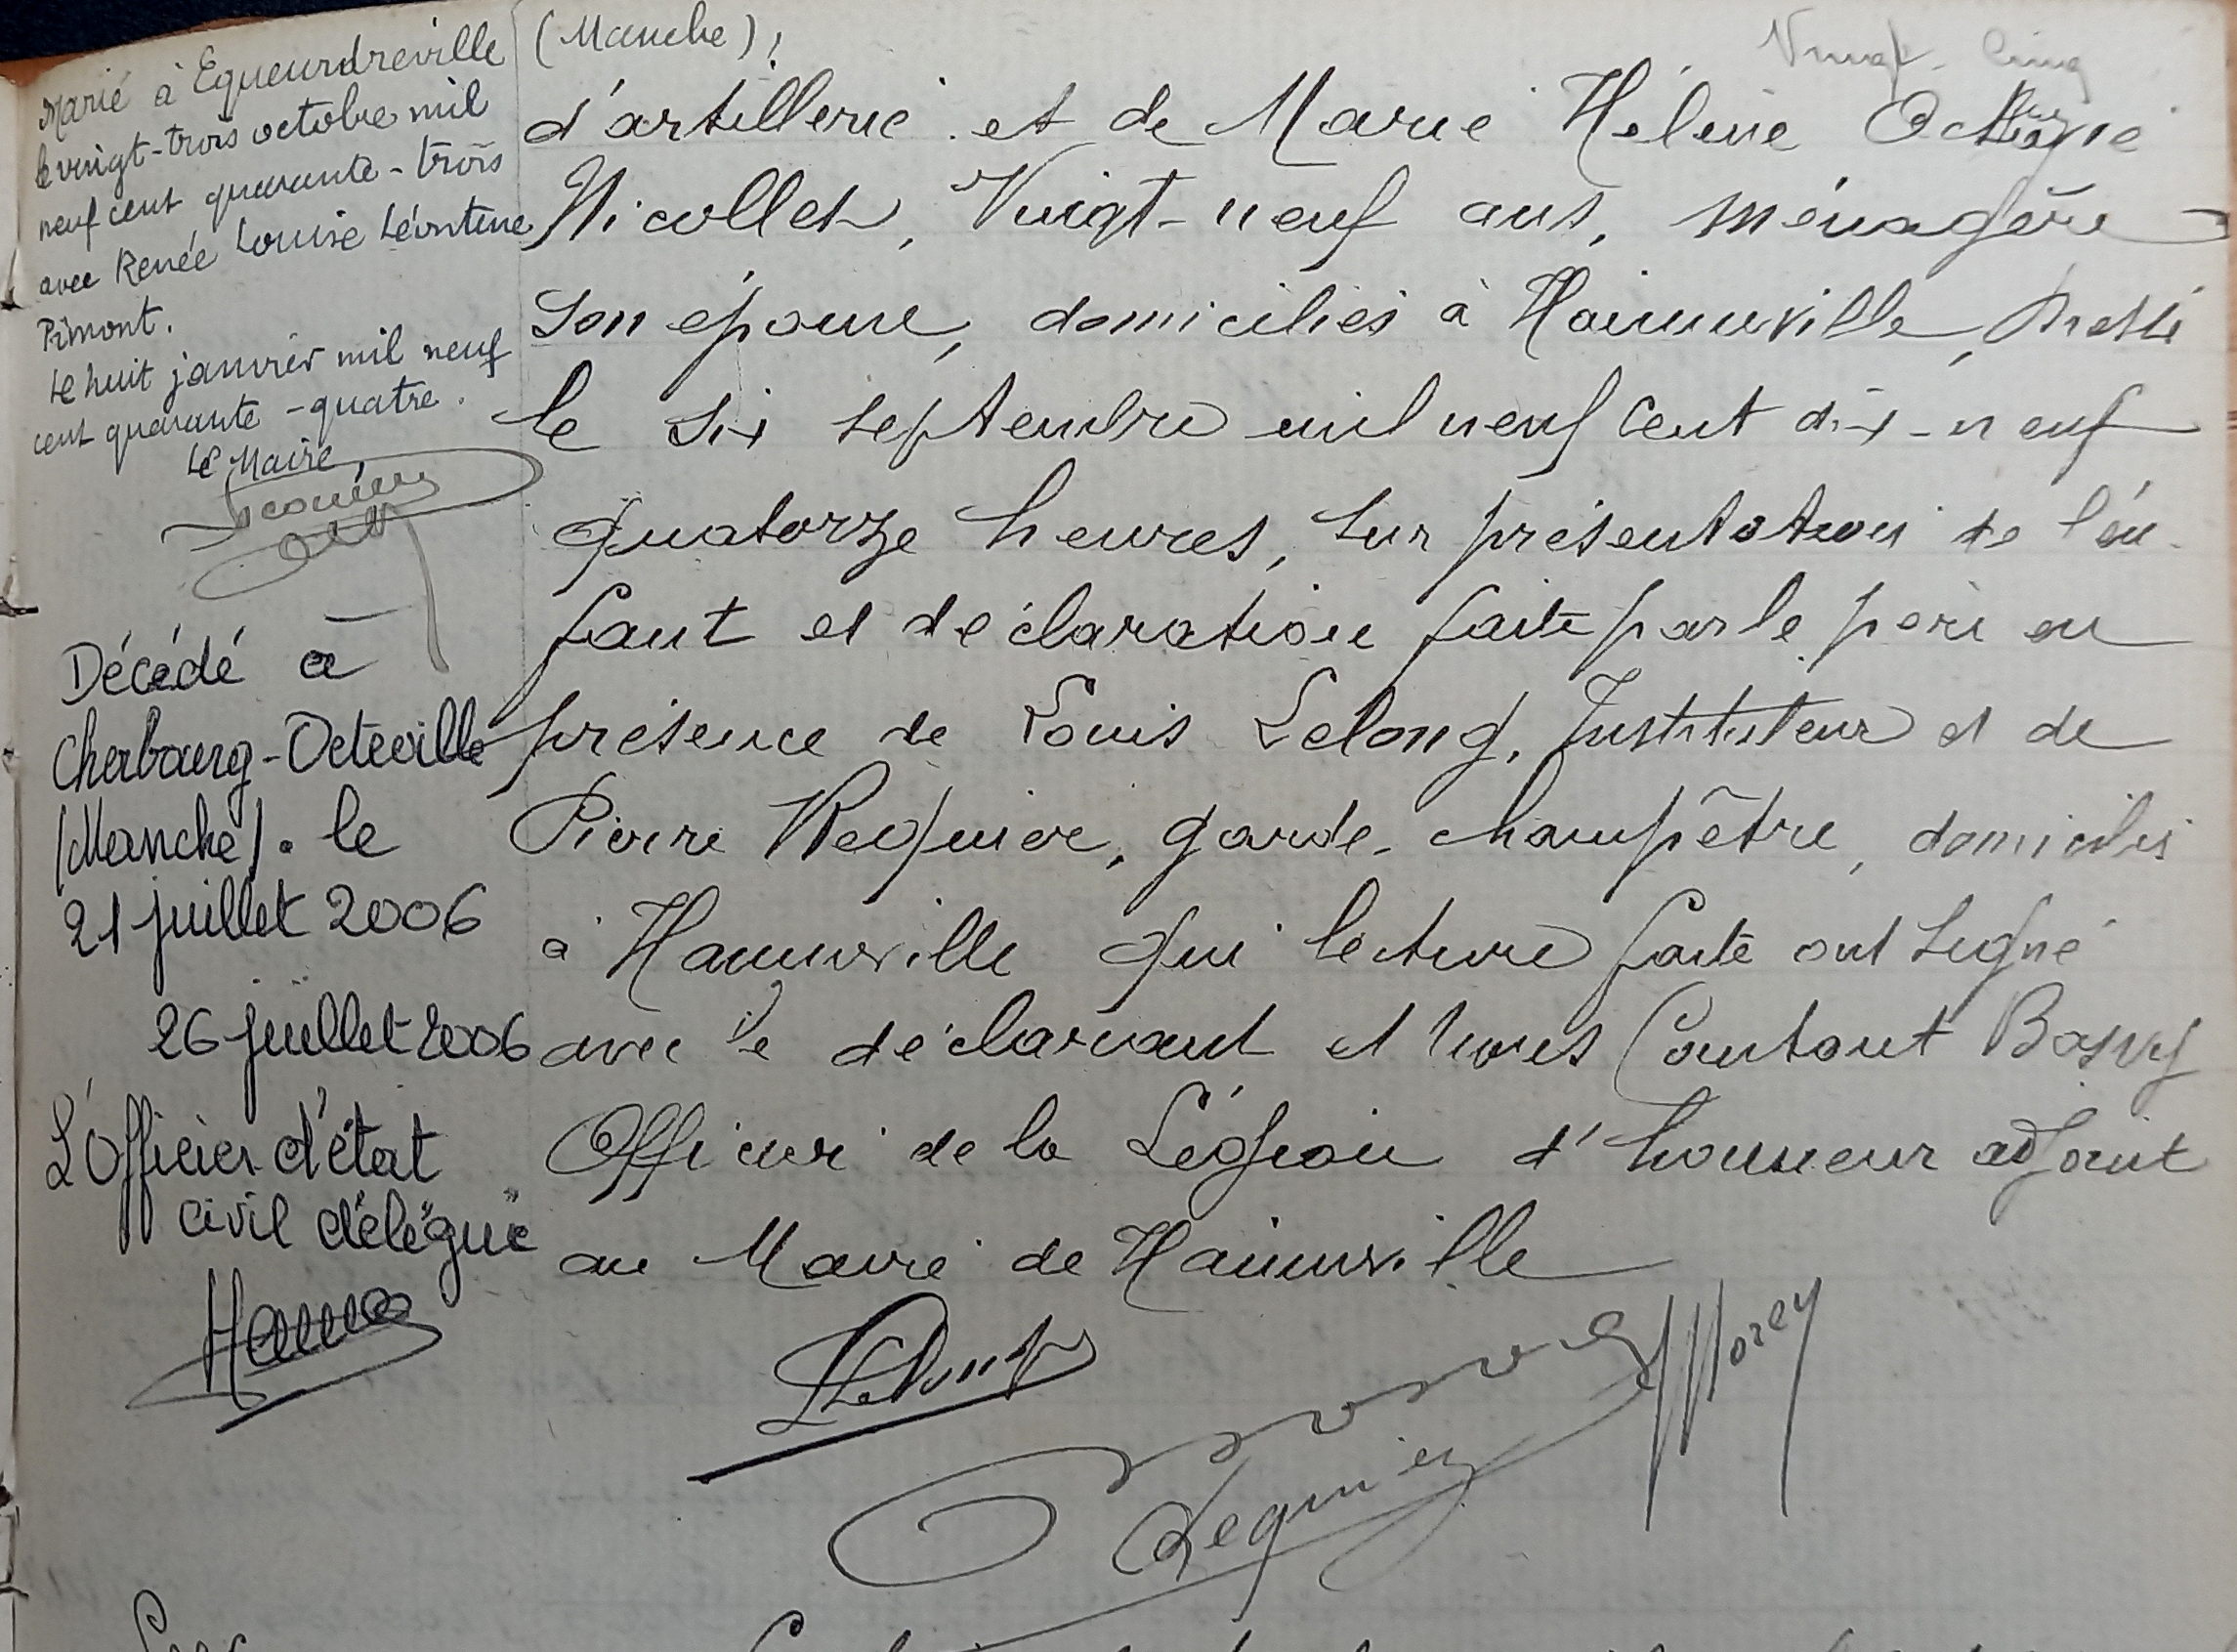 (Manche) ;
Vingt-cinq
Marié à Equeurdreville
le vingt-trois octobre mil
neuf cent quarante-trois
avec Renée Louise Léontine
Pimont.
Le huit janvier mil neuf
cent quarante-quatre.
Le Maire,
Décédé à
Cherbourg-Octeville
(Manche). le
21 juillet 2006
26 juillet 2006
L'Officier d'état
civil délégué
d'artillerie et de Marie Hélène
Nicollet, Vingt-neuf ans, ménagère
son épouse, domiciliés à Hainneville, Dressé
le six septembre mil neuf cent dix-neuf
quatorze heures, sur présentation de l'en-
fant et déclaration faite par le père en
présence de Louis Lelong, Instituteur et de
Pierre Requier, garde-champêtre, domiciliés
à Hainneville qui lecture faite ont signé
avec le déclarant et nous Constant
Officier de la Légion d'honneur adjoint
au Maire de Hainneville
Lelong
Morey
Requier